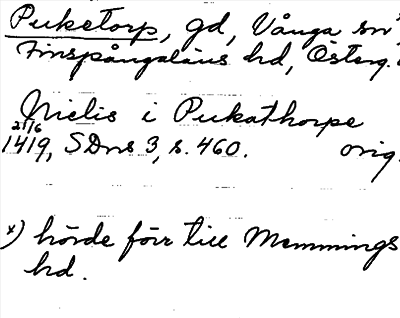 Puketorp, gd, Vånga sn
Finspångaläns hd, Österg.
Nielis i Pukathorpe
21/6
1419, SDns 3, s. 460. orig.
x) hörde förr till Memmings
hd.